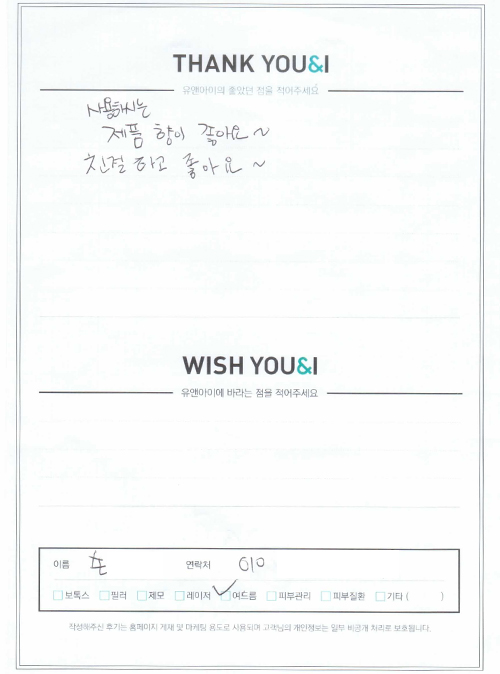 THANK YOU&I
유앤아이의 좋았던 점을 적어주세요
사용하시는
제품 향이 좋아요~
친절하고 좋아요~
WISH YOU&I
유앤아이에 바라는 점을 적어주세요
이름 손 연락처 010
보톡스 필러 제모 레이저 여드름 피부관리 피부질환 기타 ( )
작성해주신 후기는 홈페이지 게재 및 마케팅 용도로 사용되며 고객님의 개인정보는 일부 비공개 처리로 보호됩니다.